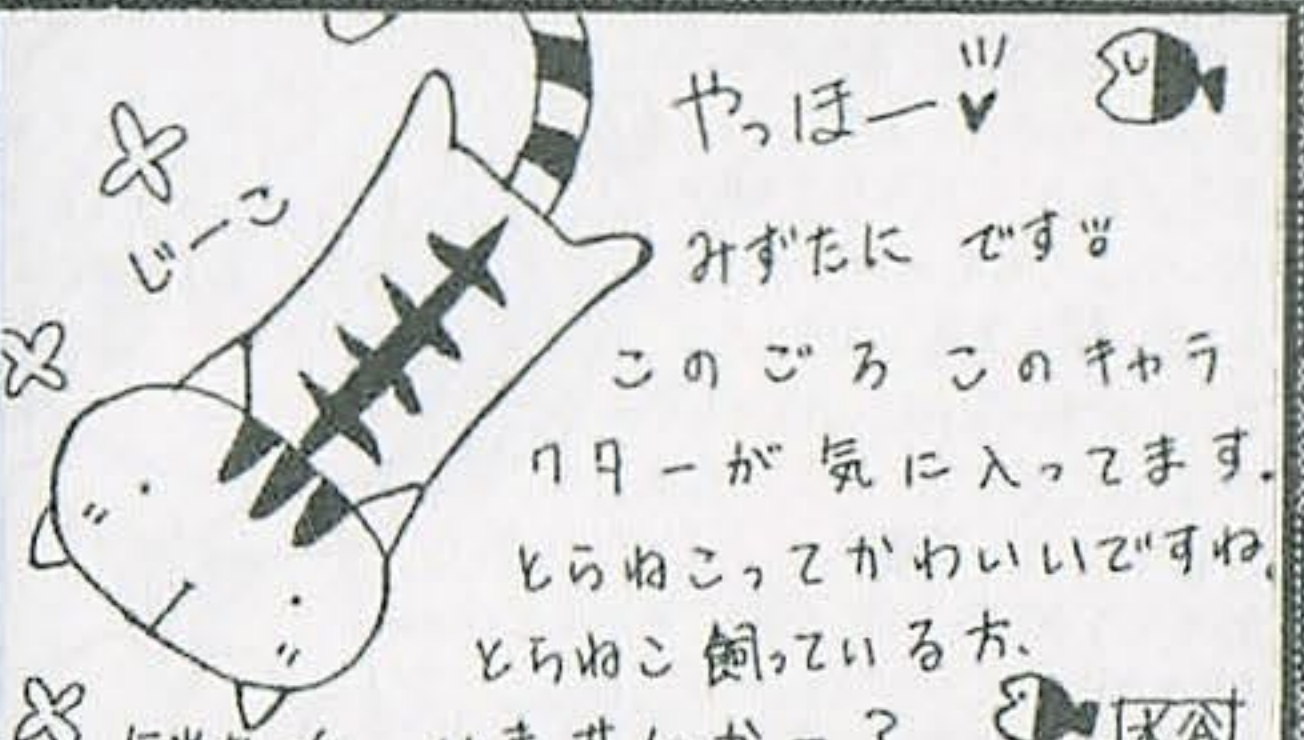 やっほー
じーこ
みずたに です
このごろ このキャラ
クターが気に入ってます.
とらねこってかわいいですね.
とらねこ飼っている方、
ませんかー?
水谷